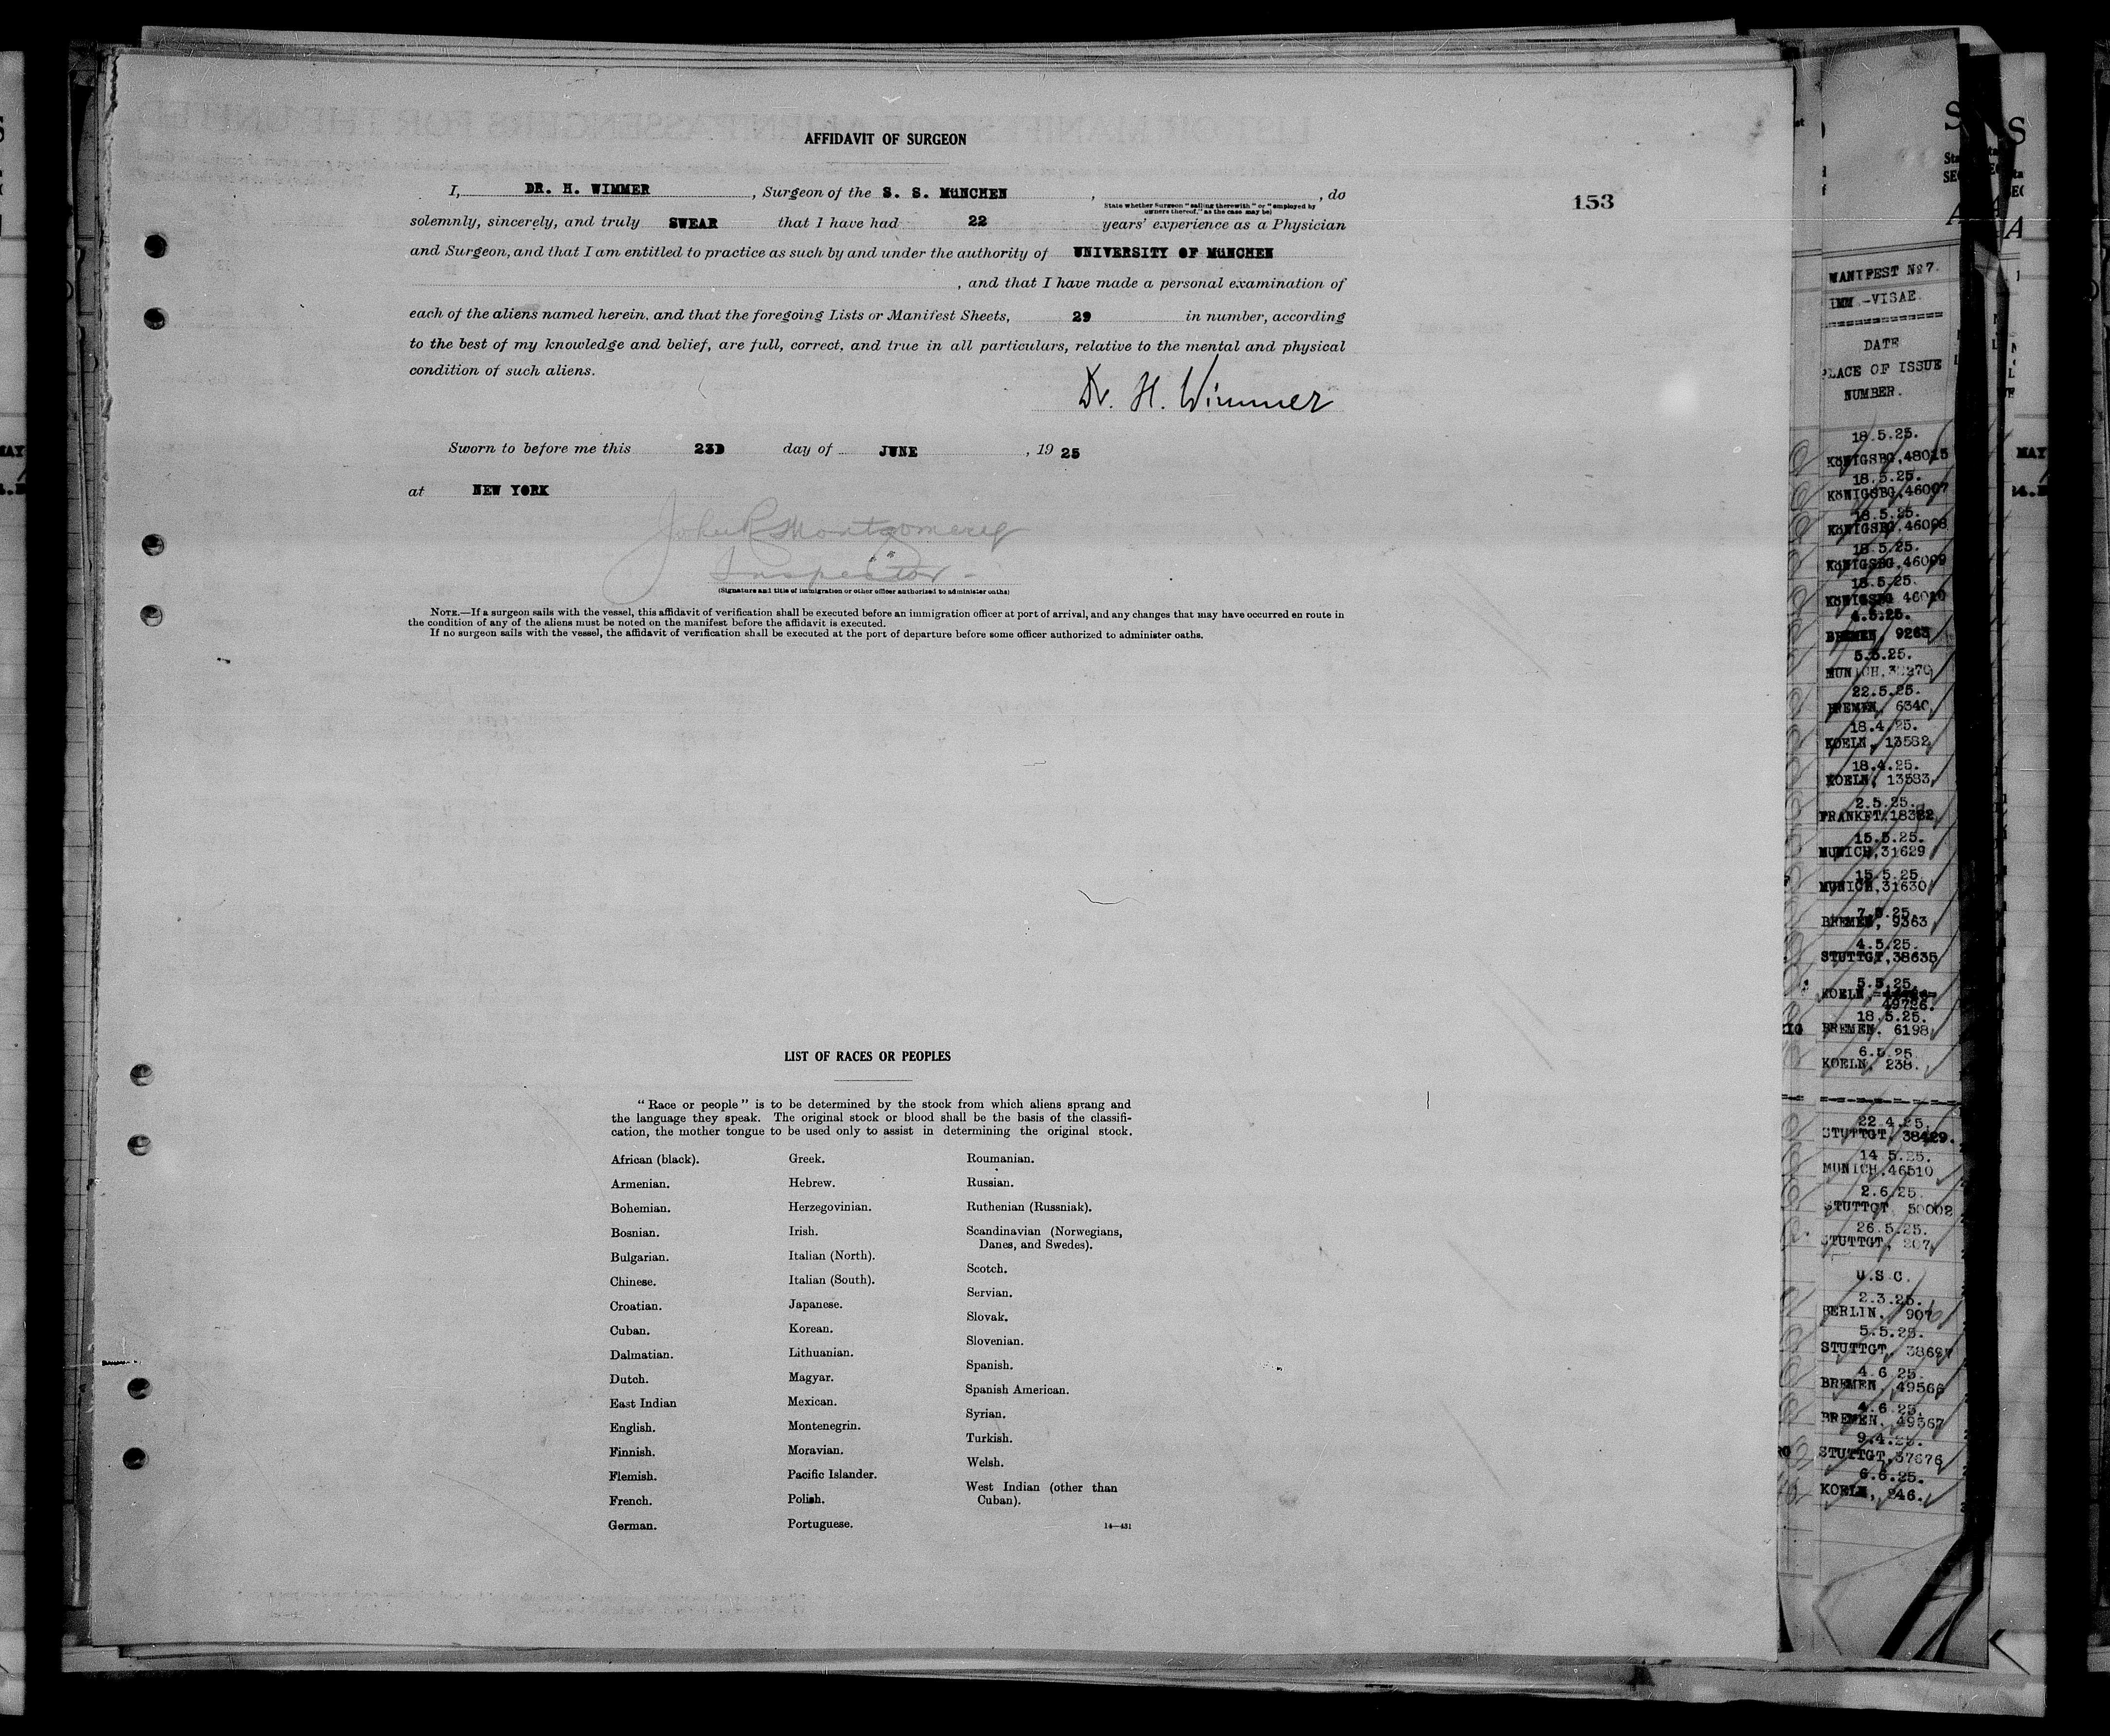 AFFIDAVIT OF SURGEON
I, DR. H. WIMMER, Surgeon of the S. S. MüNCHEN, , do
State whether Surgeon "sailing therewith" or "employed by
owners thereof," as the case may be)
153
solemnly, sincerely, and truly SWEAR that I have had 22 years' experience as a Physician
and Surgeon, and that I am entitled to practice as such by and under the authority of UNIVERSITY OF MüNCHEN
, and that I have made a personal examination of
each of the aliens named herein, and that the foregoing Lists or Manifest Sheets, 29 in number, according
to the best of my knowledge and belief, are full, correct, and true in all particulars, relative to the mental and physical
condition of such aliens.
Dr. H. Wimmer
Sworn to before me this 23D day of JUNE, 19 25
at NEW YORK
John R Montgomery
Inspector-
(Signature and title of immigration or other officer authorized to administer oaths)
NOTE.—If a surgeon sails with the vessel, this affidavit of verification shall be executed before an immigration officer at port of arrival, and any changes that may have occurred en route in
the condition of any of the aliens must be noted on the manifest before the affidavit is executed.
If no surgeon sails with the vessel, the affidavit of verification shall be executed at the port of departure before some officer authorized to administer oaths.
LIST OF RACES OR PEOPLES
"Race or people" is to be determined by the stock from which aliens sprang and
the language they speak. The original stock or blood shall be the basis of the classifi-
cation, the mother tongue to be used only to assist in determining the original stock.
African (black).
Armenian.
Bohemian.
Bosnian.
Bulgarian.
Chinese.
Croatian.
Cuban.
Dalmatian.
Dutch.
East Indian
English.
Finnish.
Flemish.
French.
German.
Greek.
Hebrew.
Herzegovinian.
Irish.
Italian (North).
Italian (South).
Japanese.
Korean.
Lithuanian.
Magyar.
Mexican.
Montenegrin.
Moravian.
Pacific Islander.
Polish.
Portuguese.
Roumanian.
Russian.
Ruthenian (Russniak).
Scandinavian (Norwegians,
Danes, and Swedes).
Scotch.
Servian.
Slovak.
Slovenian.
Spanish.
Spanish American.
Syrian.
Turkish.
Welsh.
West Indian (other than
Cuban).
14—431
MANIFEST № 7.
IMM.-VISAE.
DATE
PLACE OF ISSUE
NUMBER.
18.5.25.
KöNIGSBG,48015
18.5.25.
KöNIGSBG,46007
18.5.25.
KöNIGSBG,46008
18.5.25.
KöNIGSBG,46009
18.5.25.
KöNIGSBG 46010
4.5.25.
BREMEN, 9263
5.5.25.
MUNICH,
22.5.25.
BREMEN, 6340
18.4.25.
KOELN, 13582
18.4.25.
KOELN, 13583
2.5.25.
FRANKFT.18382
15.5.25.
MUNICH,31629
15.5.25
MUNICH,31630
7.5.25.
BREMEN, 9363
4.5.25.
STUTTGT,38635
5.5.25.
KOELN,
49726.
18.5.25.
BREMEN, 6198
6.5.25.
KOELN, 238.
22.4.25.
STUTTGT, 38429.
14 5.25.
MUNICH.46510
2.6.25.
STUTTGT, 50002
26.5.25.
STUTTGT, 207
U.S C.
2.3.25.
BERLIN, 907
5.5.25.
STUTTGT, 38697
4.6 25.
BREMEN, 49566
4.6 25.
BREMEN, 49567
9.4.25.
STUTTGT,37676
6.6.25.
KOELN, 246.